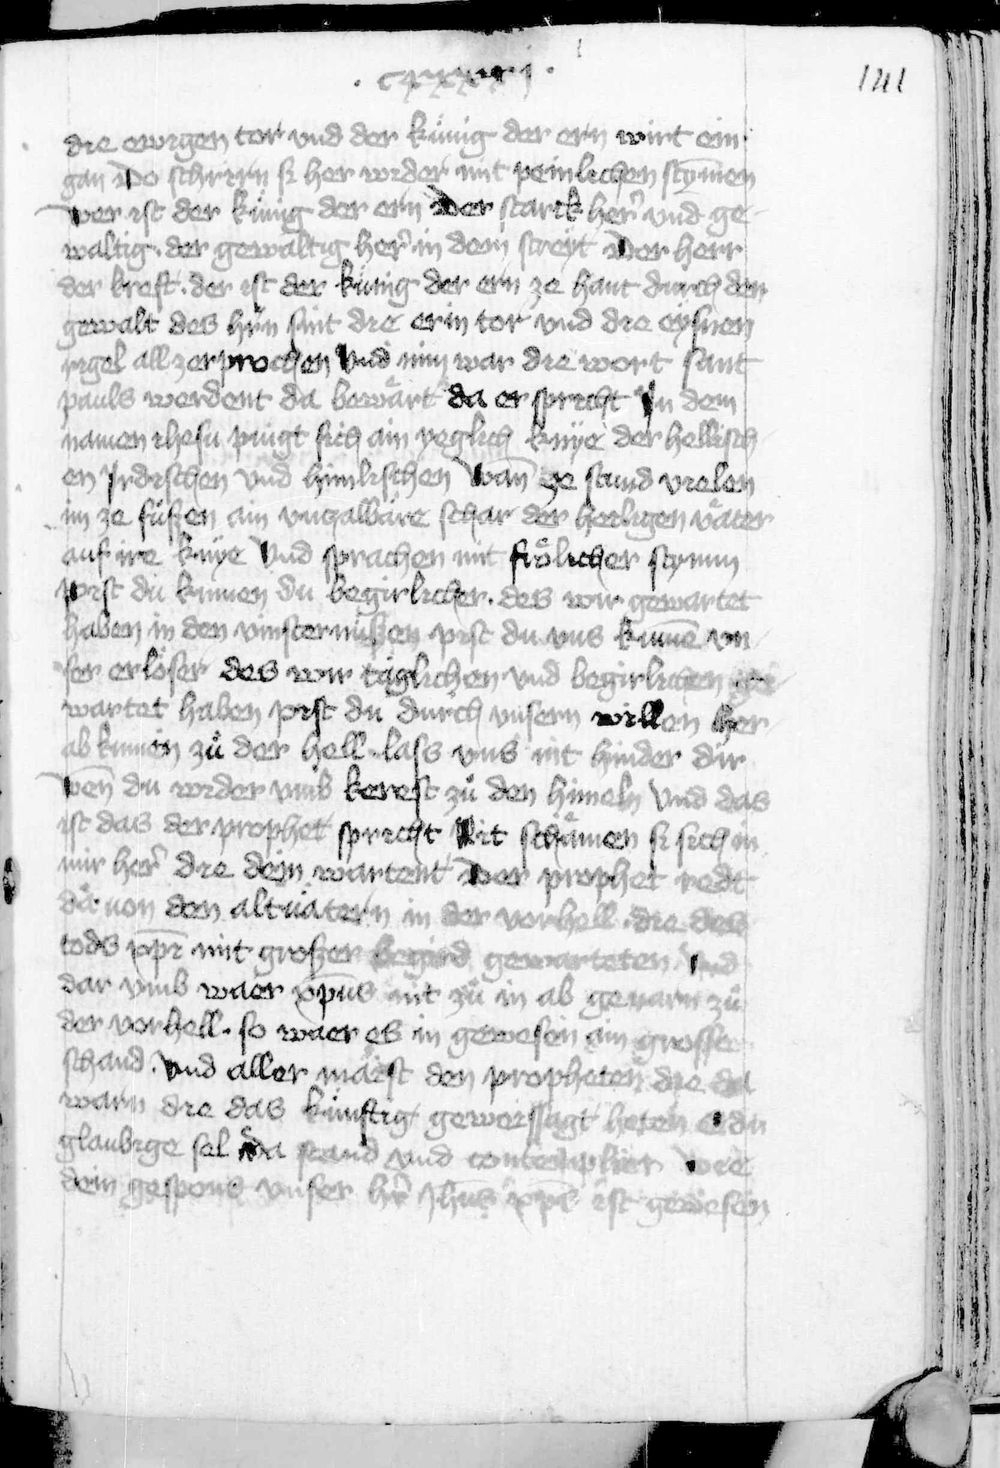 141
die ewigen tor vnd der künig der ern wirt ein
gan Do schrirn si her wider mit peinlichen stȳmen
wer ist der künig der ern Der starck her vnd ge
waltig. der gewaltig her in dem streyt Der herr
der kreft. der ist der künig der ern ze hant durch den
gewalt des hrn sint die erin tor vnd die eysnen
rigel all zerprochen Vnd nim war die wort sant
pauls werdent da bewärt da er spricht In dem
namen ihesu piugt sich ain yeglich knÿe der hellisch
en Irdischen vnd himlischen Wan ze stand vielen
im ze füssen ain vnzalbäre schar der heiligen väter
auf ire knÿe Vnd sprachen mit frölicher stymm
pist du kumen du begirlicher. des wir gewartet
haben in den vinsternüssen pist du vns kumē vn
ser erlöser des wir täglichen vnd begirlichen ge
wartet haben pist du durch vnsern willen her
ab kumen zů der hell. lass vns nit hinder dir
wen̄ du wider vmb kerest zů den himeln Vnd das
ist das der prophet spricht Nit schämen si sich in
mir her die dein wartent Der prophet redt
da von den altuätern in der vorhell. die des
tods xp̄i mit grosser begird gewarteten Vnd
dar vmb waer xp̄us nit zů in ab geuarn zů
der vorhell. so waer es in gewesen ain grosse
schand. Vnd aller maist den propheten die da
warn die das künftig geweissagt heten O du
glaubige sel Da stand vnd contemplier Wie
dein gespons vnser hr Jhūs xp̄s ist gewesen